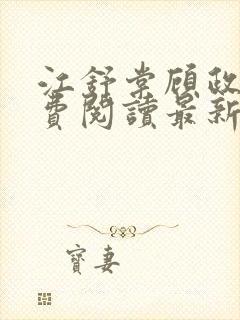 江舒棠顧政
費閱讀最新
寶妻